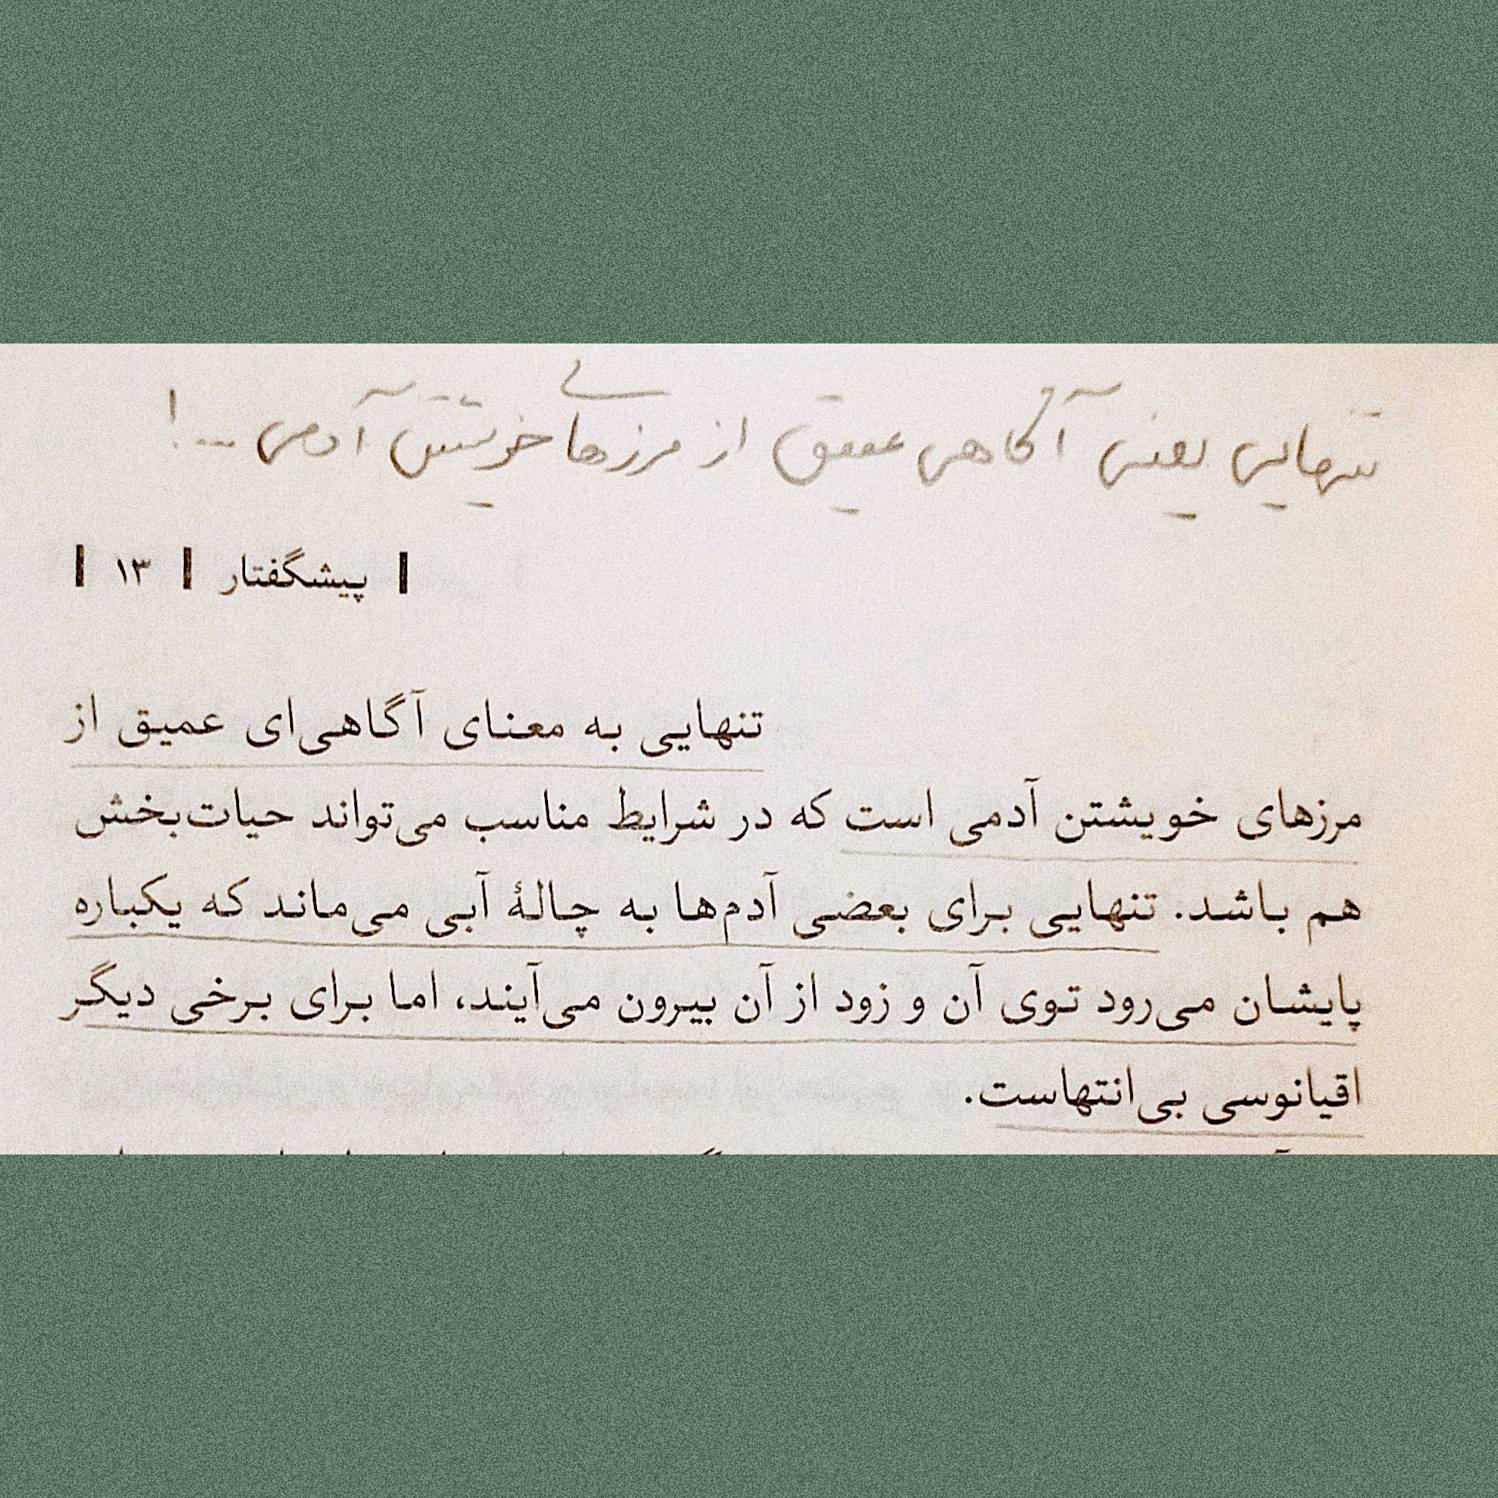 تنهایی یعنی آگاهی عمیق از مرزهای خویشتن آدمی ...!
| پیشگفتار | ۱۳ |
تنهایی به معنای آگاهی‌ای عمیق از
مرزهای خویشتن آدمی است که در شرایط مناسب می‌تواند حیات‌بخش
هم باشد. تنهایی برای بعضی آدم‌ها به چالهٔ آبی می‌ماند که یکباره
پایشان می‌رود توی آن و زود از آن بیرون می‌آیند، اما برای برخی دیگر
اقیانوسی بی‌انتهاست.